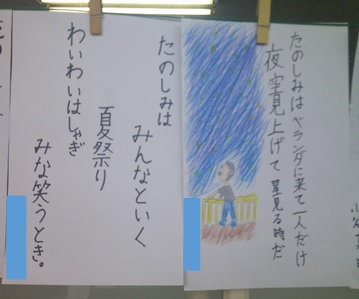 たのしみはベランダに来て一人だけ
夜空見上げて星見る時だ
たのしみは
みんなといく
夏祭り
わいわいはしゃぎ
みな笑うとき。